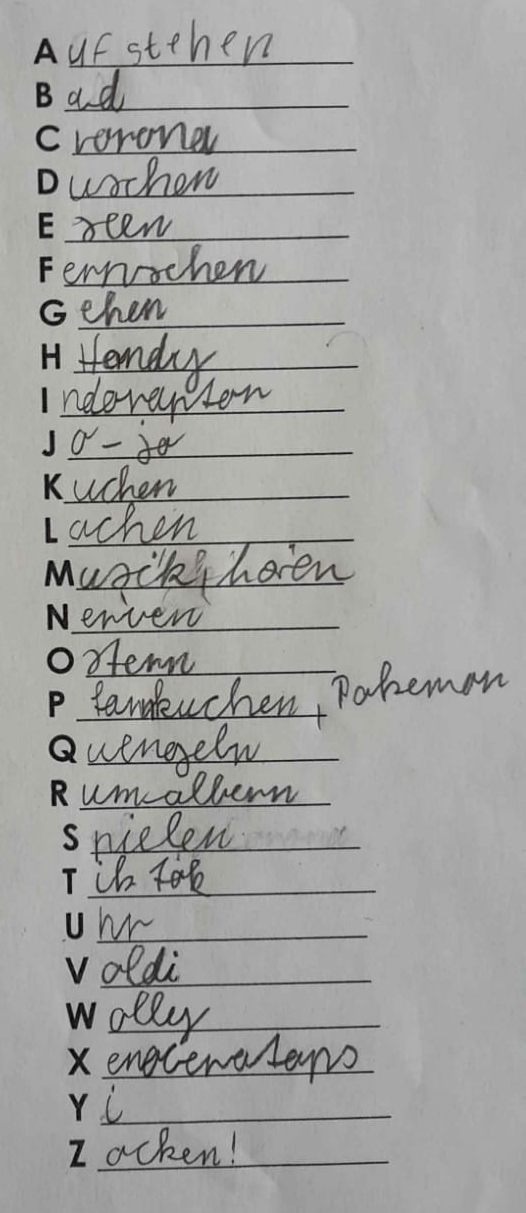 Aufstehen
Bad
Corona
Duschen
Essen
Fernsehen
Gehen
H Handy
Indoraptor
Jo-jo
Kuchen
Lachen
Musik, hören
Nerven
Ostern
Pfannkuchen, Pokemon
Quengeln
Rumalbern
Spielen
Tik tok
Uhr
Valdi
Wally
Xenoceratops
Yi
Zocken!